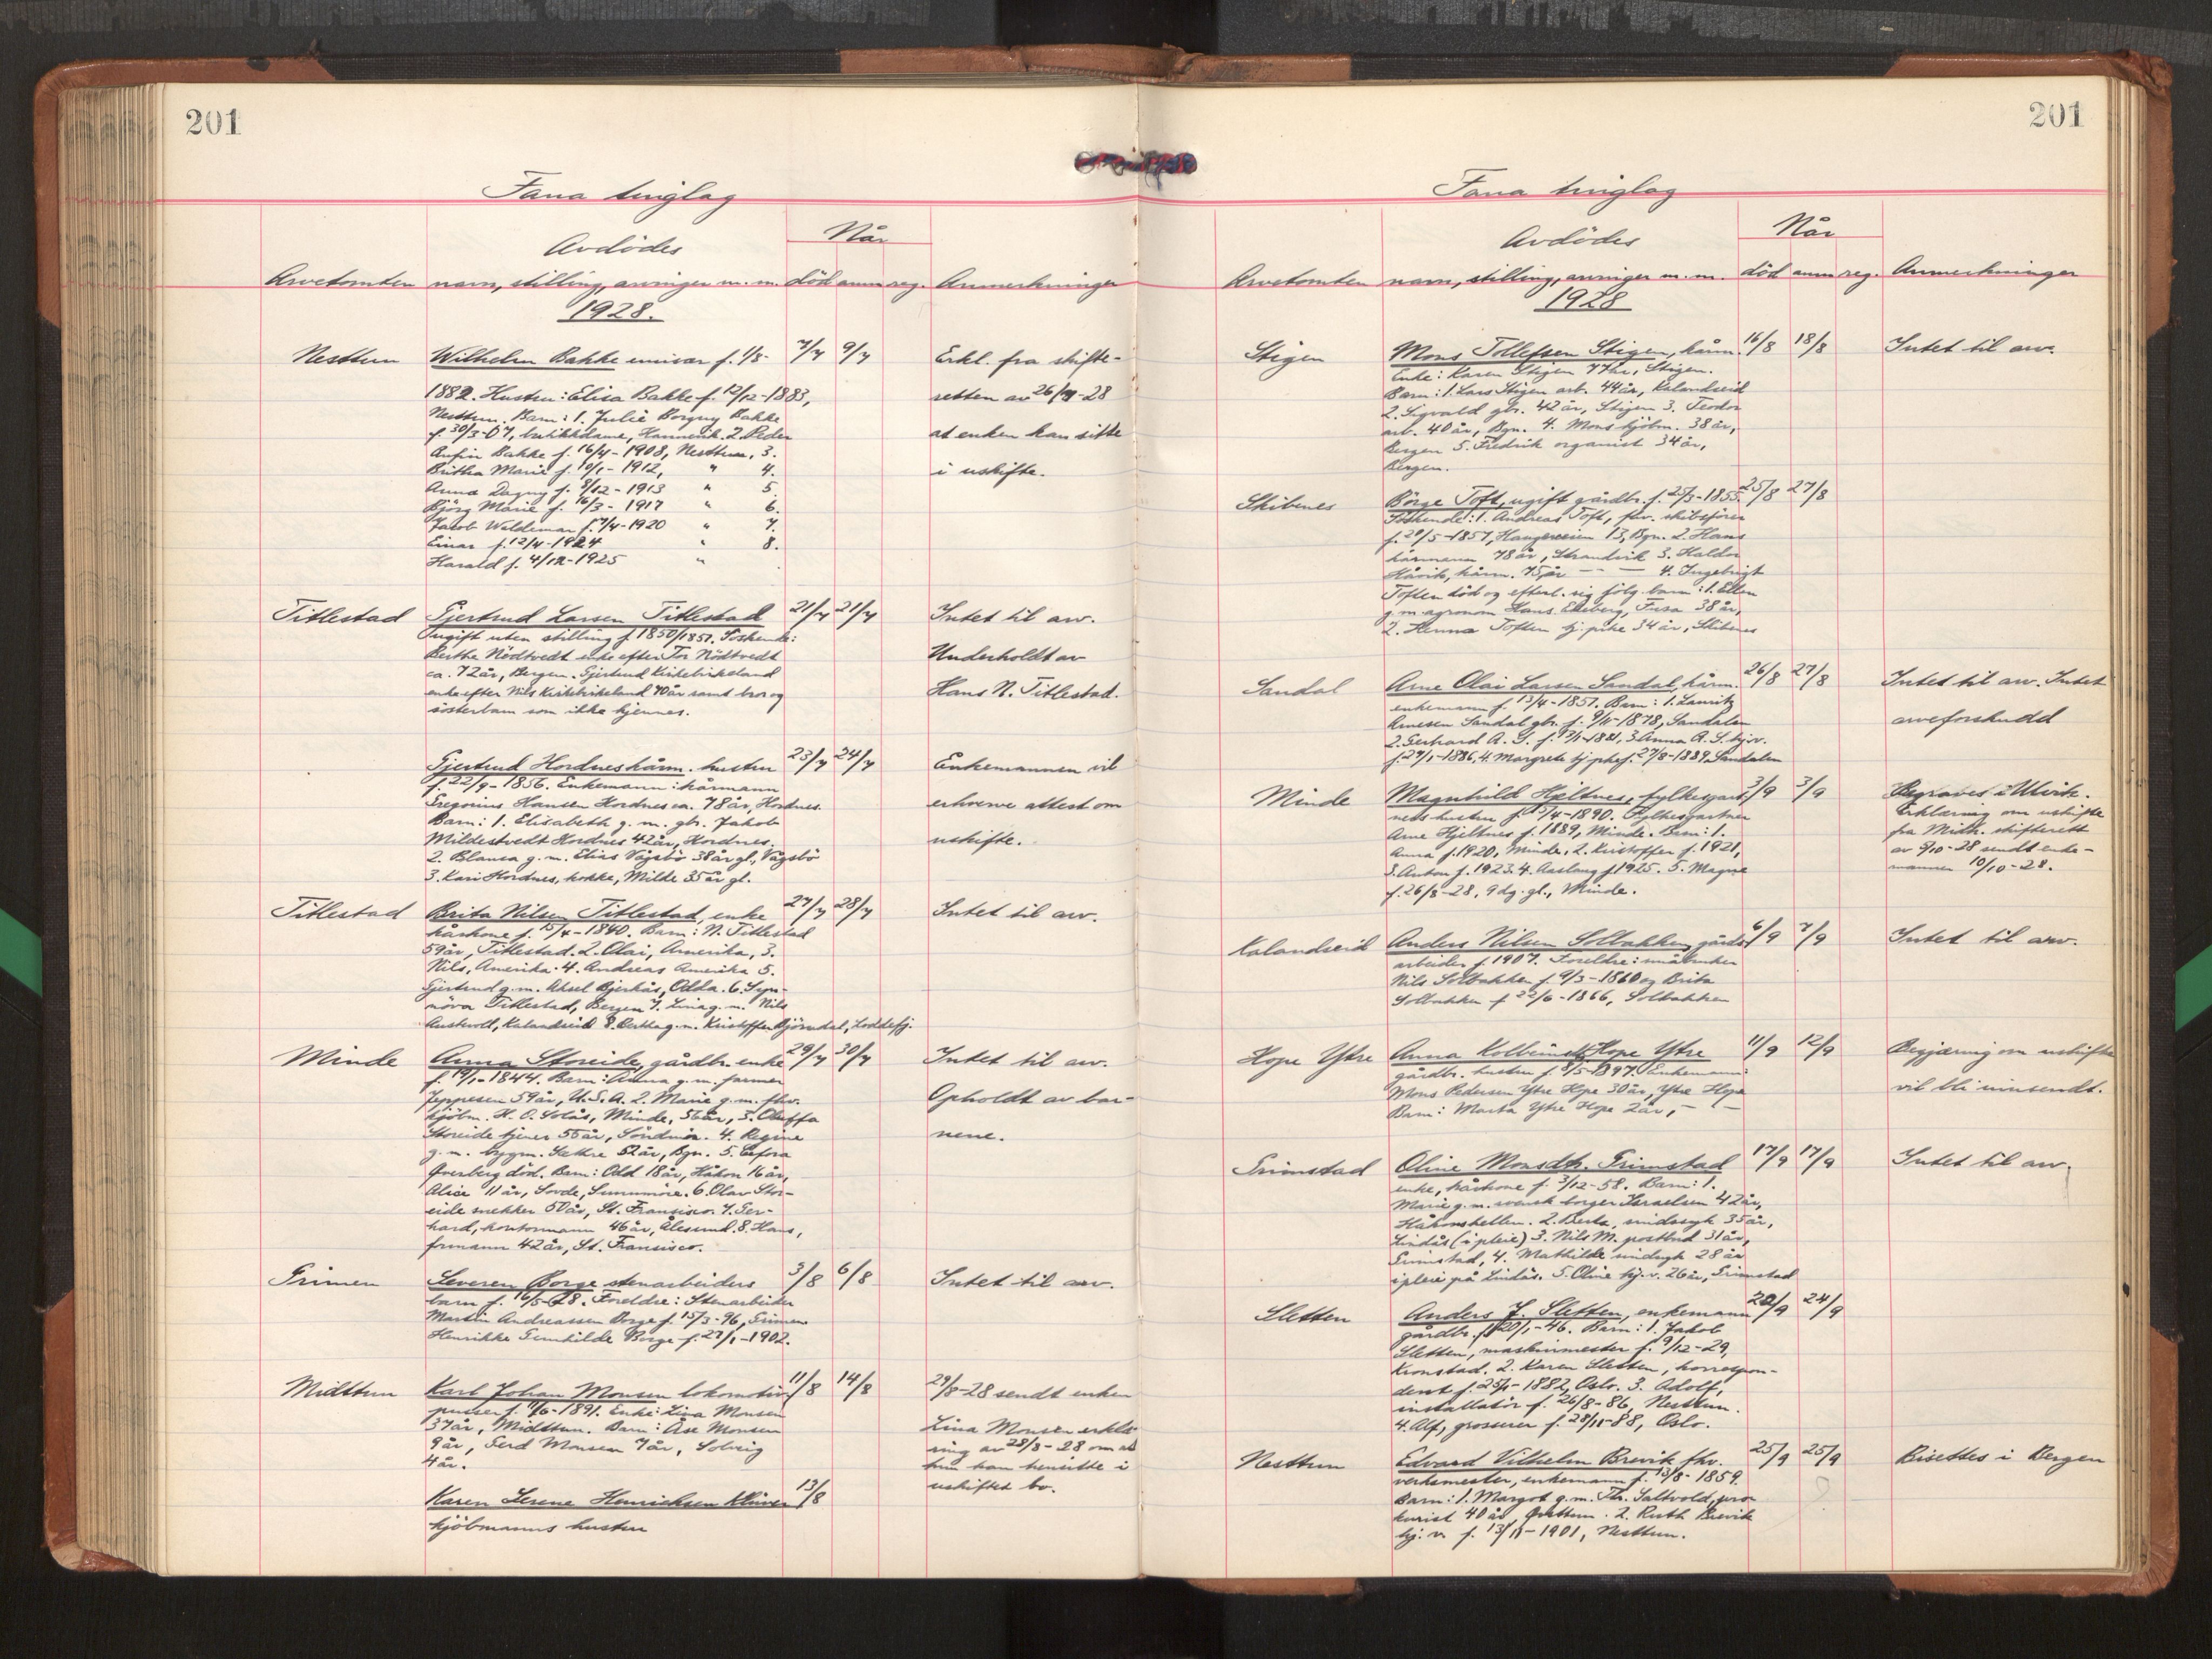 201
Fana tinglag
Når
Avdödes
Arvetomten navn, stilling, arvinger m.m. död anm reg. Anmerkninger
1928.
Nesttun Wilhelm Bakke emisær f. 1/8- 7/7 9/7 Erkl. fra skifte-
1882. Hustru: Elisa Bakke f. 12/12-1883, retten av 26/7-28
Nesttun. Barn: 1. Julie Borgny Bakke
f. 30/3-07, butikkdame, 2. Peder at enken kan sitte
Anfin Bakke f. 16/4-1908, Nesttun, 3.
Britha Marie f. 10/1-1912, " 4. i uskifte.
Anna Dagny f. 8/12-1913 " 5.
Björg Marie f. 16/3-1917 " 6.
Jacob Waldemar f. 7/4-1920 " 7.
Einar f. 12/4-1924 " 8.
Harald f. 4/12-1925 "
Titlestad Gjertrud Larsen Titlestad 21/7 21/7 Intet til arv.
Ungift uten stilling f. 1850/1851. Söskende:
Berthe Nödtvedt enke efter Tor Nödtvedt Underholdt av
ca. 72 år, Bergen. Gjertrud Kirkebirkeland
enke efter Nils Kirkebirkeland 70 år samt bror og Hans N. Titlestad.
sösterbarn som ikke kjennes.
Gjertrud Hordnes kårm. hustru 23/7 24/7 Enkemannen vil
f. 22/9-1856. Enkemann: kårmann
Gregorius Hansen Hordnes ca. 78 år, Hordnes. erhverve attest om
Barn: 1. Elisabeth g.m. gbr. Jakob
Mildestvedt Hordnes 42 år, Hordnes. uskifte.
2. Blansa g.m. Elias Vågsbö 38 år gl., Vågsbö
3. Kari Hordnes, kokke, Milde 35 år gl.
Titlestad Brita Nilsen Titlestad, enke 27/7 28/7 Intet til arv.
kårkone f. 15/4-1840. Barn: N. Titlestad
59 år, Titlestad. 2. Olai, Amerika, 3.
Nils, Amerika. 4. Andreas Amerika 5.
Gjertrud g.m. Aksel Bjerkås, Odda. 6. Syn-
növa Titlestad, Bergen 7. Lina g.m. Nils
Austevoll, Kalandseid 8. Bertha g.m. Kristoffer Björndal, Loddefj.
Minde Anna Storeide, gårdbr. enke 29/7 30/7 Intet til arv.
f. 19/1-1844. Barn: Anna g.m. farmer
Jeppesen 59 år, U.S.A. 2. Marie g.m. fhv. Opholdt av bar-
kjöbm. H.O. Solås, Minde, 56 år, 3. Oluffa
Storeide tjener 55 år, Söndmör. 4. Regine nene.
g.m. bygm. Sættre 52 år, Bgn. 5.
Overberg död. Barn: Odd 18 år, Håkon 16 år,
Alice 11 år, Sovde, Sunnmöre. 6. Olav Stor-
eide snekker 50 år, St. Fransisco. 7. Ger-
hard, kontormann 46 år, Ålesund. 8. Hans,
formann 42 år, St. Fransisco.
Grimen Severen Borge stenarbeiders 3/8 6/8 Intet til arv.
barn f. 16/5-28. Foreldre: Stenarbeider
Martin Andreassen Borge f. 15/3-96, Grimen
Henrikke Gunhilde Borge f. 27/1-1902.
Midttun Karl Johan Monsen lokomotiv- 11/8 14/8 29/8-28 sendt enken
pusser f. 11/6-1891. Enke: Lina Monsen
37 år, Midttun. Barn: Åse Monsen Lina Monsen erklæ-
9 år, Gerd Monsen 7 år, Solveig ring av 28/8-28 om at
4 år. hun kan hensitte i
uskiftet bo.
Karen Serene Henriksen Klüver 13/8
kjöbmanns hustru
201
Fana tinglag
Når
Avdödes
Arvetomten navn, stilling, arvinger m.m. död anm reg. Anmerkninger
1928
Stigen Mons Tollefsen Stigen, kårm. 16/8 18/8 Intet til arv.
Enke: Karen Stigen 77 år, Stigen.
Barn: 1. Lars Stigen arb. 44 år, Kalandseid
2. Sigvald gbr. 42 år, Stigen 3. Teodor
arb. 40 år, Bgn. 4. Mons kjöbm. 38 år,
Bergen 5. Fredrik organist 34 år,
Bergen.
Skibenes Börge Toft, ugift gårdbr. f. 25/3-1855. 25/8 27/8
Söskende: 1. Andreas Toft, fhv. skibsförer
f. 20/5-1857, Haugeveien 13, Bgn. 2. Hans
kårmann 78 år, Strandvik 3. Haldor
Håvik, kårm. 75 år — — 4. Ingebrigt
Toften död og efterl. sig fölg. barn: 1. Ellen
g.m. agronom Hans Ekeberg, Fusa 38 år,
2. Henna Toften tj.pike 34 år, Skibenes
Sandal Arne Olai Larsen Sandal, kårm. 26/8 27/8 Intet til arv. Intet
enkemann f. 13/4-1851. Barn: 1. Lauritz
Arnesen Sandal gbr. f. 9/11-1878, Sandalen arveforskudd
2. Gerhard A. S. f. 12/1-1881, 3. Anna A. S. hjv.
f. 27/1-1886, 4. Margrete tj.pike f. 27/8-1889 Sandalen
Minde Magnhild Hjeltnes, fylkesgart- 3/9 3/9 Begraves i Ulvik.
ners hustru f. 15/4-1890. Fylkesgartner Erklæring om uskifte
Arne Hjeltnes f. 1889, Minde. Barn: 1. fra Midh. skifterett
Anna f. 1920, Minde, 2. Kristoffer f. 1921, av 9/10-28 sendt enke-
3. Anton f. 1923. 4. Aaslaug f. 1925. 5. Magne mannen 10/10-28.
f. 26/8-28, 9 dg. gl., Minde.
Kalandseid Anders Nilsen Solbakken gårds- 6/9 7/9 Intet til arv.
arbeider f. 1907. Foreldre: småbruker
Nils Solbakken f. 9/3-1860 og Brita
Solbakken f. 22/6-1866, Solbakken
Hope Ytre Anna Kolbeinsd. Hope Ytre 11/9 12/9 Begjæring om uskifte
gårdbr. hustru f. 8/5-1897. Enkemann:
Mons Pedersen Ytre Hope 30 år, Ytre Hope vil bli innsendt.
Barn: Marta Ytre Hope 2 år, — —
Grimstad Oline Monsdtr. Grimstad 17/9 17/9 Intet til arv.
enke, kårkone f. 3/12-58. Barn: 1.
Marie g.m. svensk borger Israelsen 42 år,
Håkonshellen. 2. Berta, sindssyk 35 år,
Lindås (i pleie) 3. Nils M. postbud 31 år,
Grimstad, 4. Mathilde sindsyk 28 år
i pleie på Lindås. 5. Oline hj.v. 26 år, Grimstad
Sletten Anders J. Sletten, enkemann 22/9 24/9
gårdbr. f. 20/1-46. Barn: 1. Jakob
Sletten, maskinmester f. 9/12-29,
Kronstad. 2. Karen Sletten, korrespon-
dent f. 25/1-1882, Oslo. 3. Adolf,
installatör f. 26/8-86, Nesttun.
4. Alf, grosserer f. 28/11-88, Oslo.
Nesttun Edvard Vilhelm Brevik fhv. 25/9 25/9 Bisettes i Bergen
verksmester, enkemann f. 13/8-1859.
Barn: 1. Margot g.m. Th. Saltvold, pro-
kurist 40 år, Nesttun. 2. Ruth Brevik
hj.v. f. 13/11-1901, Nesttun.